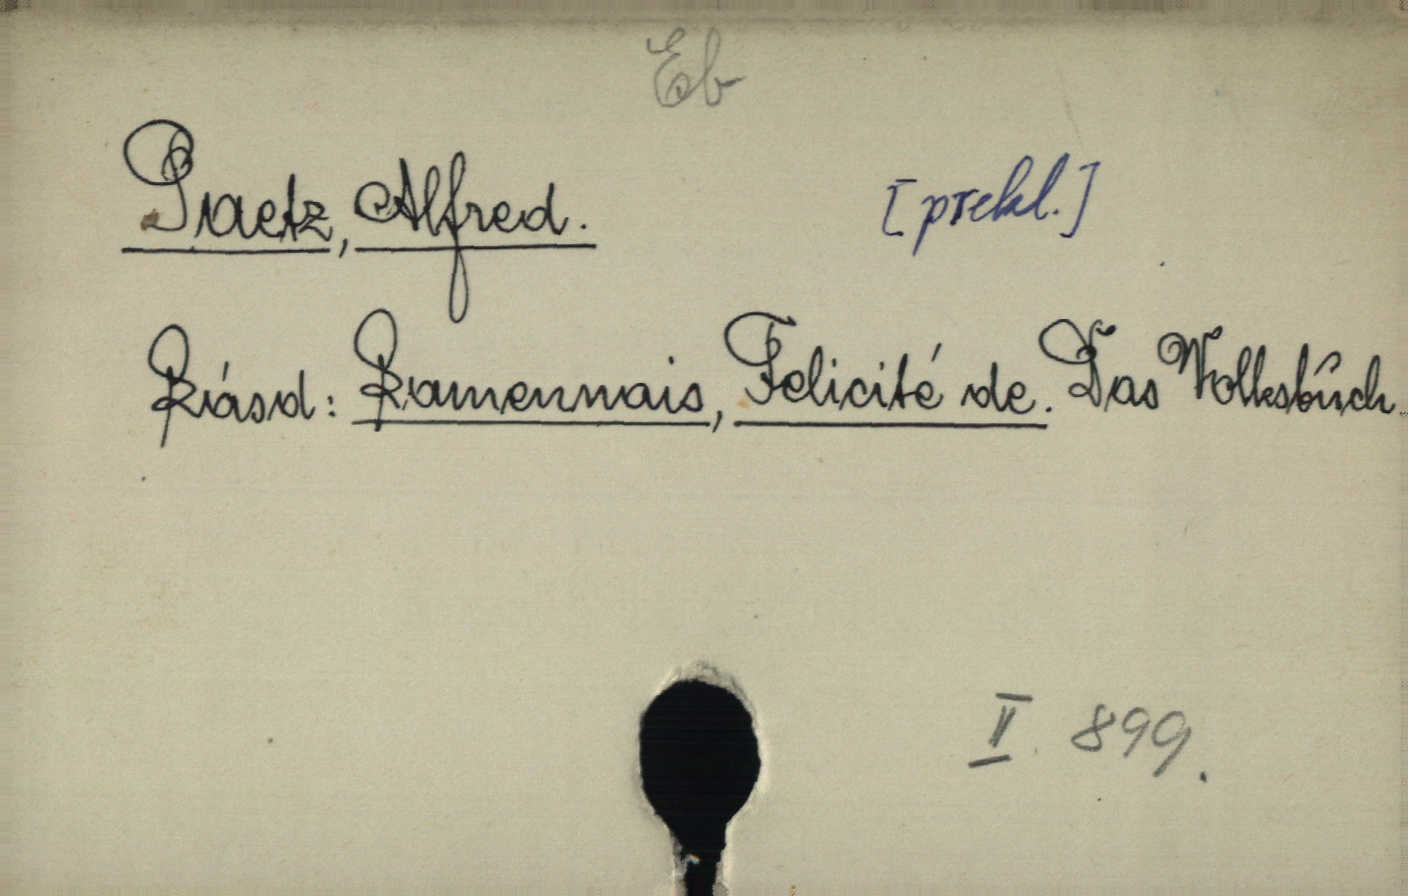 Eb
Praetz, Alfred.
[prekl.]
Lásd: Lamennais, Felicité de. Das Volksbuch.
II. 899.